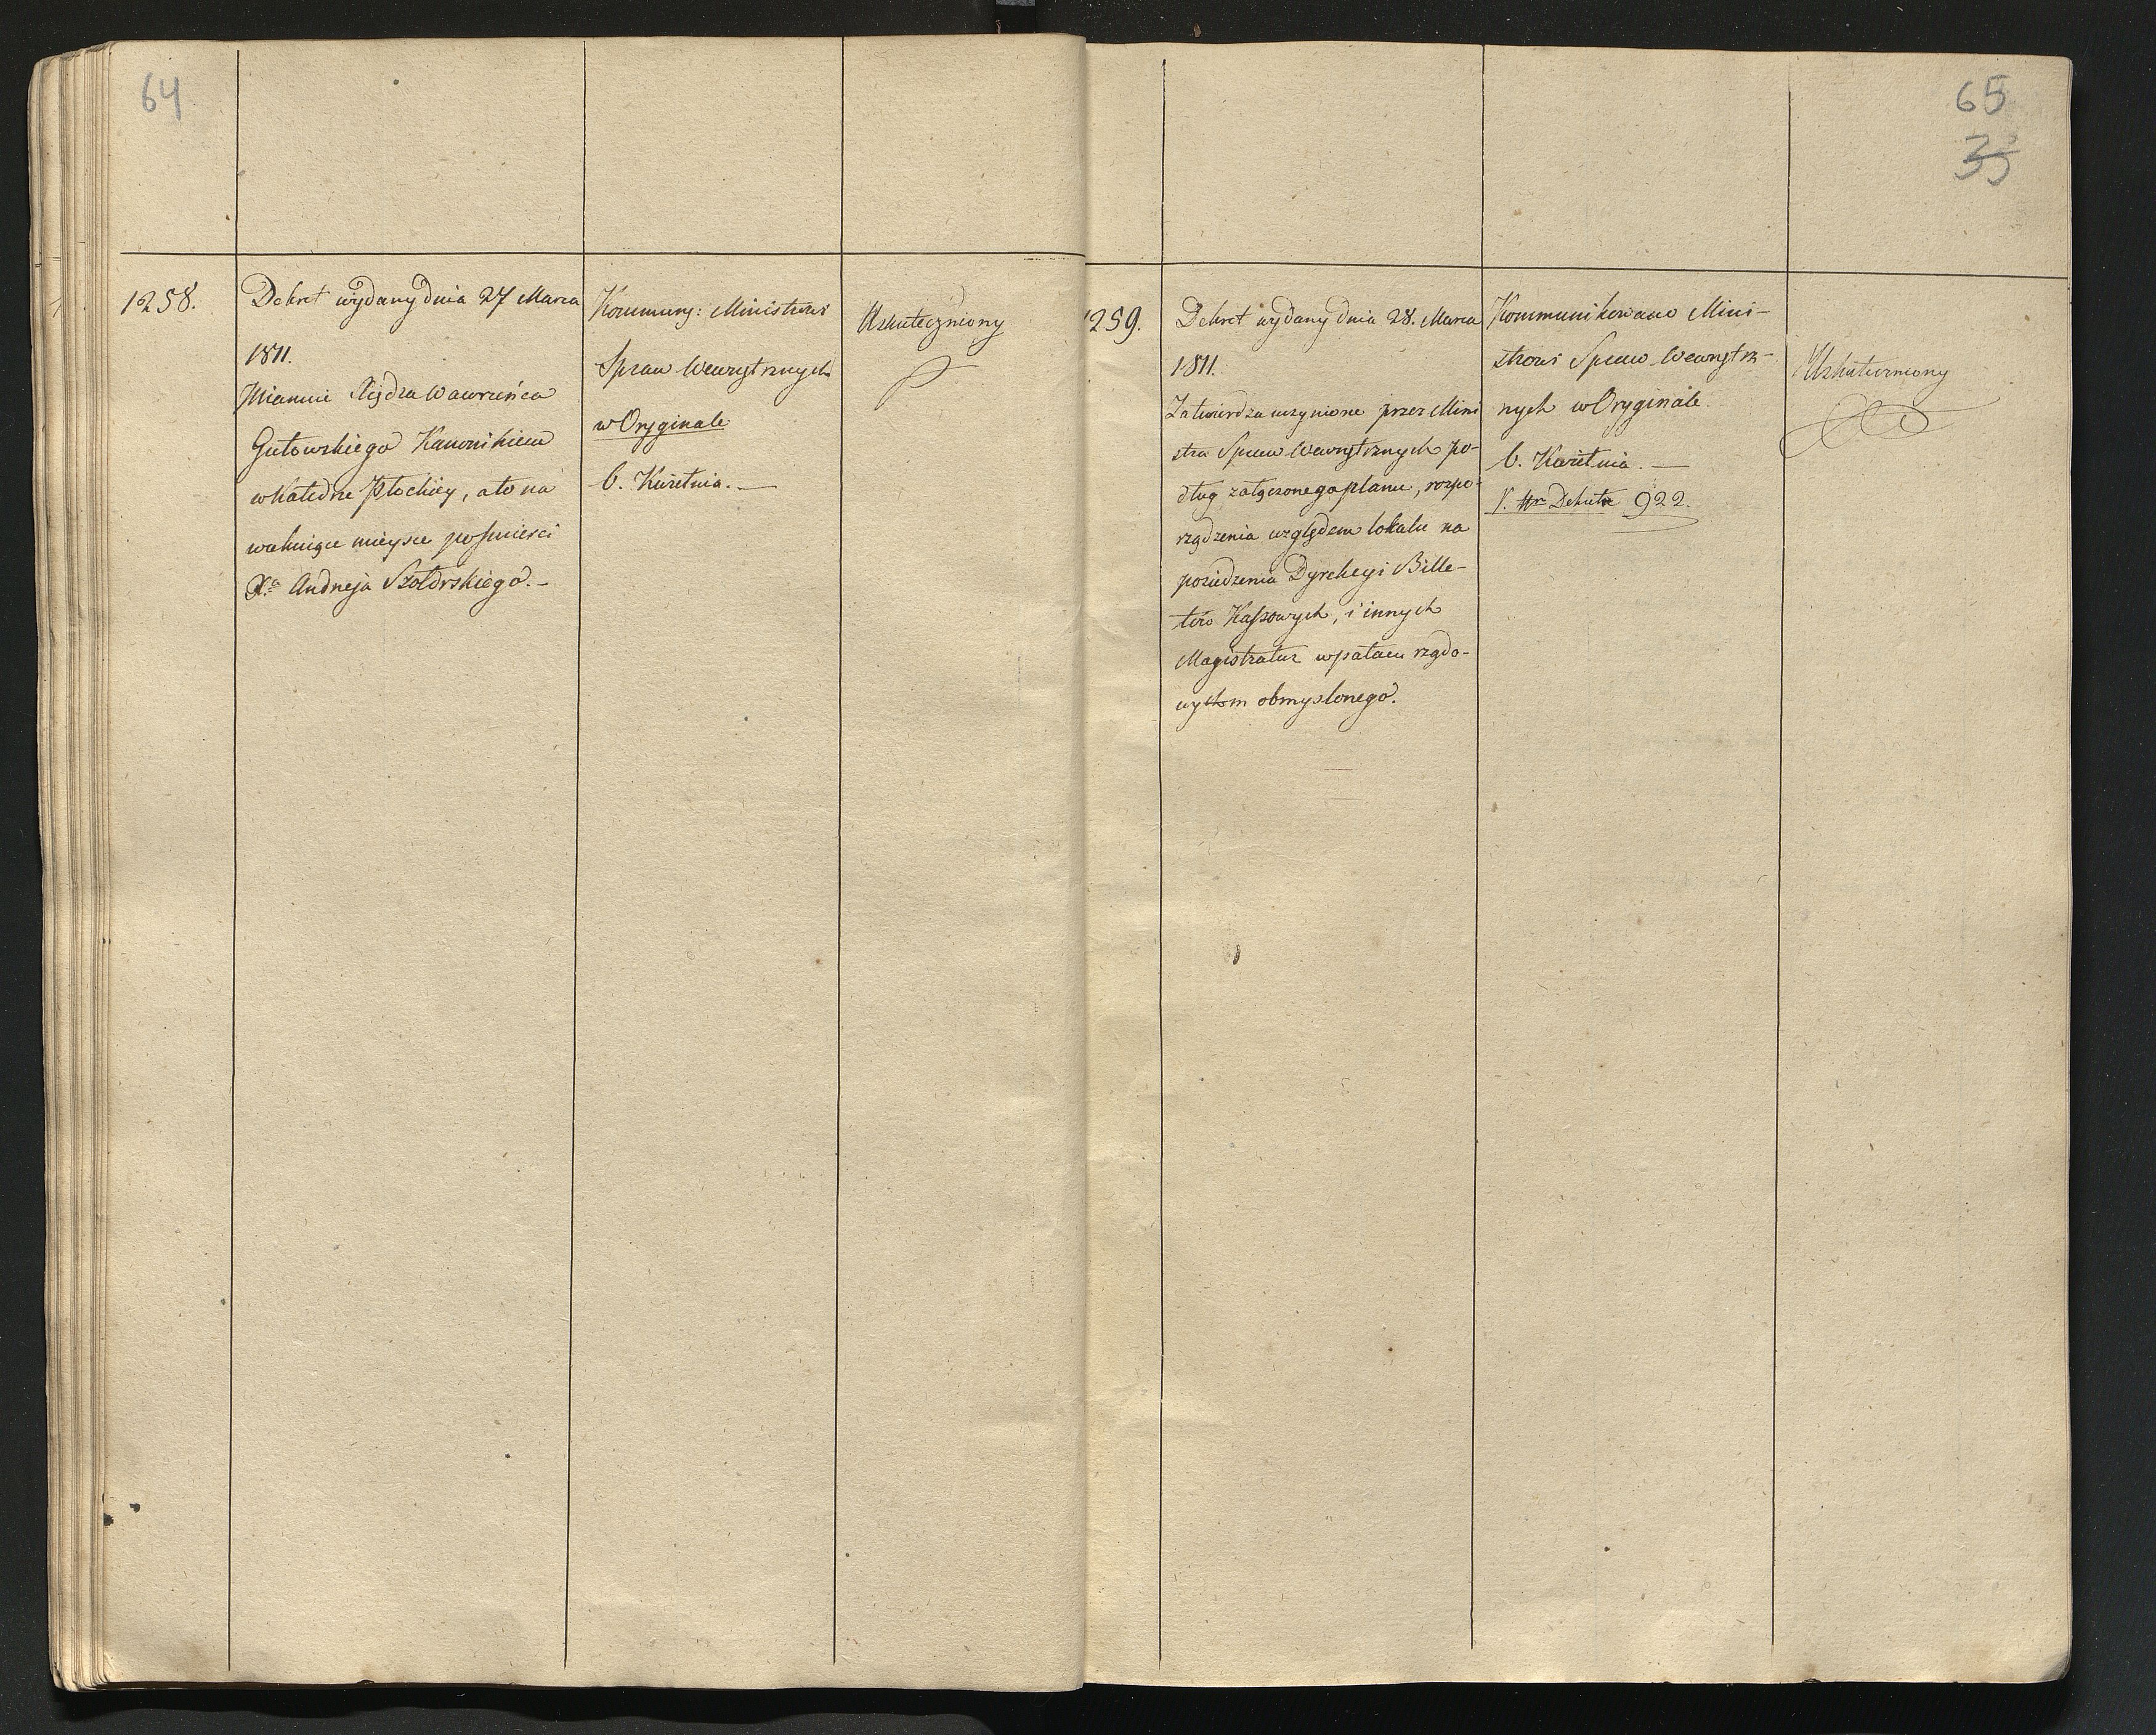 64
1258.
Dekret wydany dnia 27 Marca
1811.
Mianuie Xiędza Wawrzeńca
Gutowskiego Kanonikiem
w Katedrze Płockiey, a to na
wakuiące mieysce po śmierci
Xa Andrzeja Szołdrskiego. –
Kommuny: Ministrowi
Spraw Wewnętrznych
w Oryginale
6. Kwietnia. —
Uskuteczniony
65
33
1259.
Dekret wydany dnia 28. Marca
1811.
Zatwierdza uczynione przez Mini
stra Spraw Wewnętrznych po-
dług załączonego planu, rozpo-
rządzenia względem lokalu na
posiedzenia Dyrekcyi Bille-
tów Kassowych, i innych
Magistratur w pałacu rządo-
wym obmyslonego.
Kommunikowano Mini-
strowi Spraw Wewnętrz-
nych w Oryginale.
6. Kwietnia. —
V. Dekret 922.
Uskuteczniony